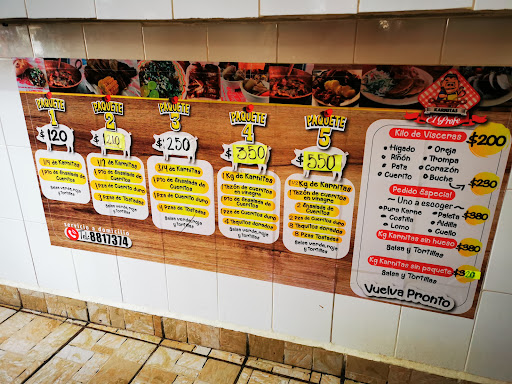 PAQUETE
1
$120
1/4 de Karnitas
1 Pto de Ensalada de
Cueritos
Salsa verde, roja
y tortillas
PAQUETE
2
$210
1/2 de Karnitas
1 Pto de Ensalada de
Cueritos
1 Pza de Cuerito duro
Salsa verde, roja
y tortillas
PAQUETE
3
$250
3/4 de Karnitas
1 Pto de Ensalada de
Cueritos
1 Pza de Cuerito duro
4 Pzas de Tostadas
Salsa verde, roja
y Tortillas
PAQUETE
4
$350
1 Kg de Karnitas
1 Tazón de cueritos
en vinagre
2 Ensalada de
Cueritos
1 Pza de Cuerito duro
4 Pza de Tostadas
4 Taquitos dorados
Salsa verde, roja
y Tortillas
PAQUETE
5
$550
Kg de Karnitas
1 Tazón de cueritos
en vinagre
2 Ensalada de
Cueritos
2 Pza de Cuerito duro
8 Taquitos dorados
8 Pzas Tostadas
Salsa verde, roja
y Tortillas
Servicio a domicilio
Tel: 8817374
KARNITAS
El Profe
Kilo de Visceras
$200
• Higado
• Riñón
• Pata
• Cuerito
• Oreja
• Trompa
• Corazón
• Buche
$230
Pedido Especial
Uno a escoger
$380
• Pura Karne
• Costilla
• Lomo
• Paleta
• Aldilla
• Cuello
Kg Karnitas sin hueso
$380
Salsa y Tortillas
Kg Karnitas sin paquete
Salsa y Tortillas
Vuelva Pronto